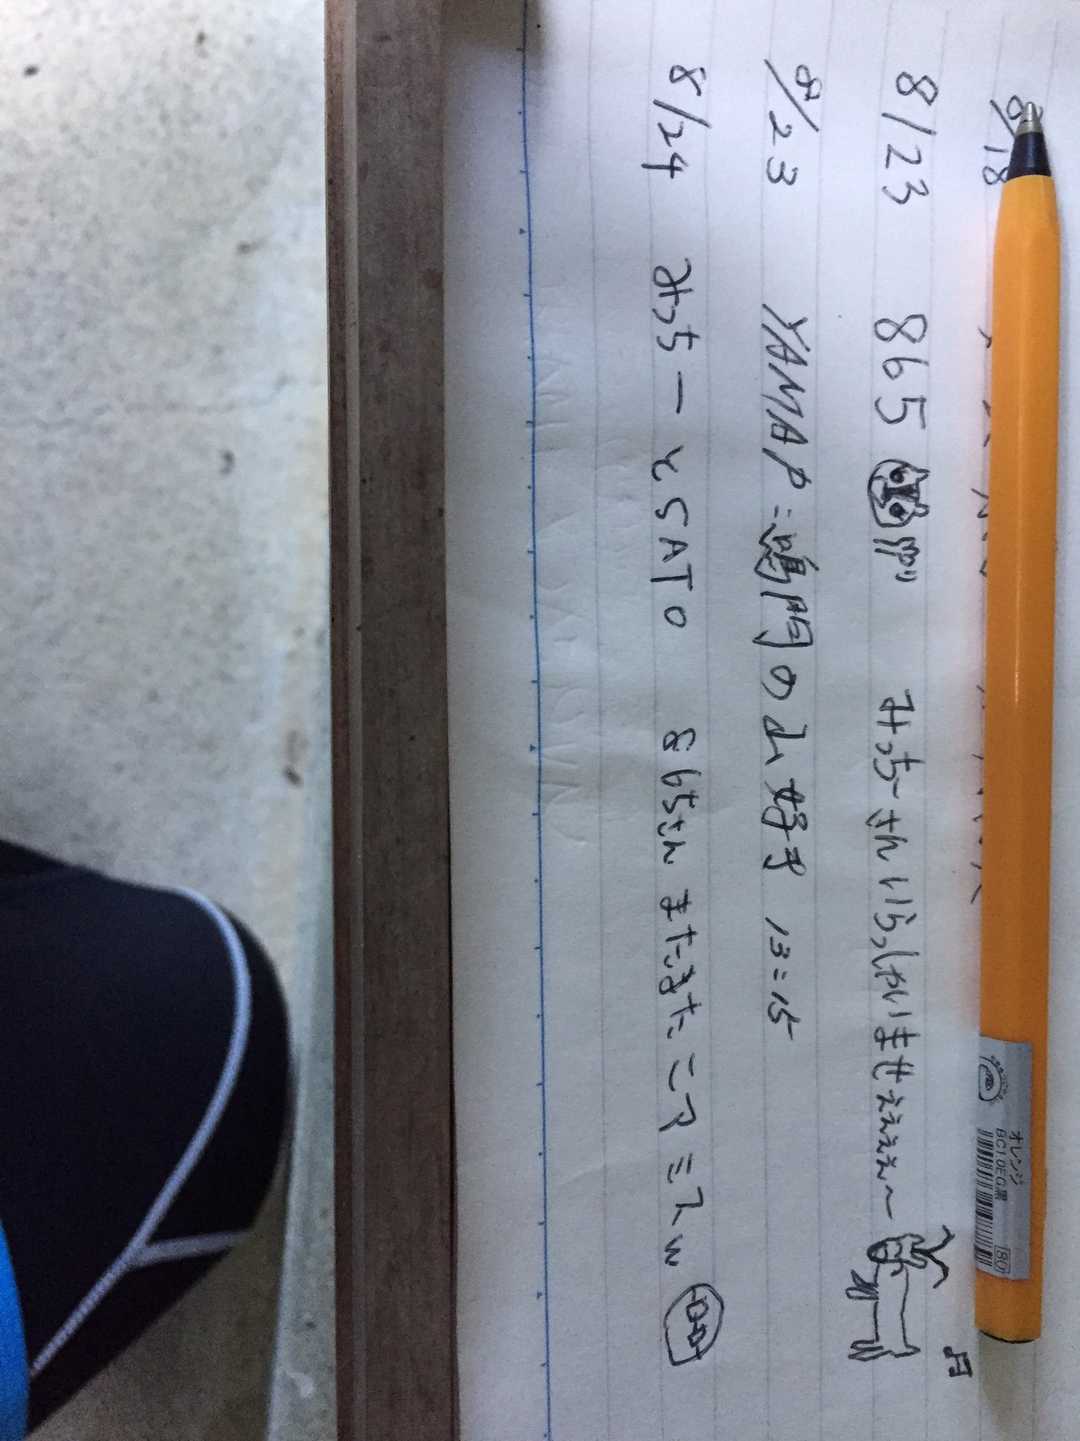 8/18
8/23 865 みっちーさんいらっしゃいませぇぇぇぇ〜
8/23 YAMAP:鳴門の山好き 13:15
8/24 みっちーとSATO 865さん またまたニアミスw
オレンジ
BC1.0EG黒
80